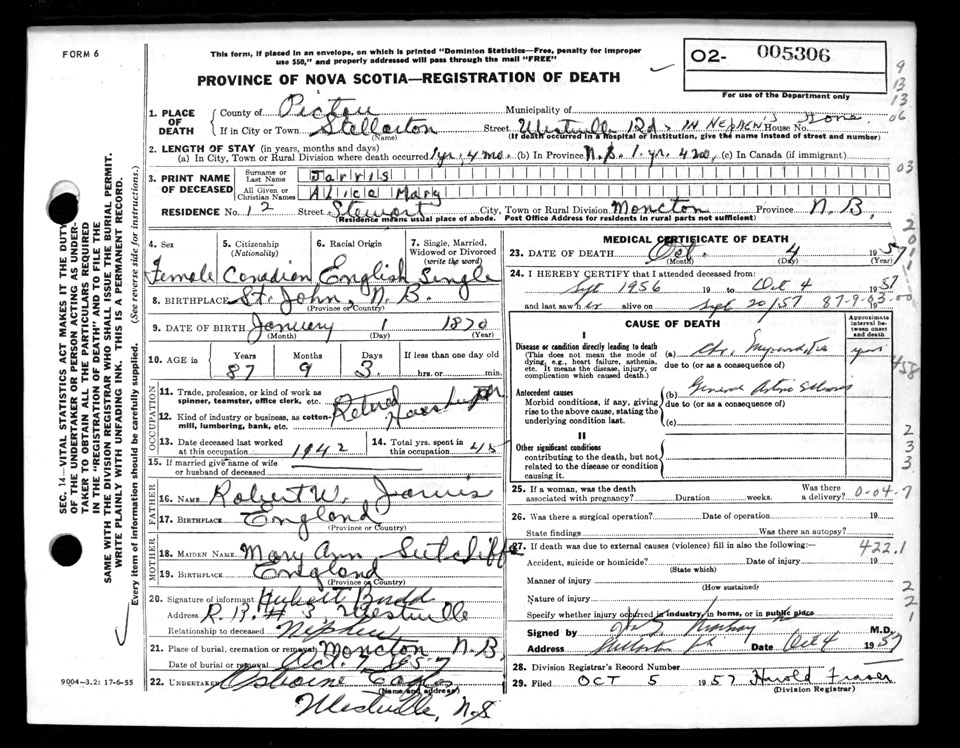 FORM 6
This form, if placed in an envelope, on which is printed "Dominion Statistics—Free, penalty for improper
use $50," and properly addressed will pass through the mail "FREE"
O2- 005306
For use of the Department only
PROVINCE OF NOVA SCOTIA—REGISTRATION OF DEATH
9
13
13
06
03
1. PLACE OF DEATH
County of Pictou Municipality of
If in City or Town Stellarton Street Westville Rd - IN NEPHEW'S House No. Home
(Name) (If death occurred in a hospital or institution, give the name instead of street and number)
2. LENGTH OF STAY (in years, months and days)
(a) In City, Town or Rural Division where death occurred 1 yr. 4 mo. (b) In Province N.S. 1. yr. 4 mo. (c) In Canada (if immigrant)
3. PRINT NAME OF DECEASED
Surname or Last Name Jarvis
All Given or Christian Names Alice Mary
RESIDENCE No. 12 Street Stewart City, Town or Rural Division Moncton Province N.B.
(Residence means usual place of abode. Post Office Address for residents in rural parts not sufficient)
SEC. 14—VITAL STATISTICS ACT MAKES IT THE DUTY
OF THE UNDERTAKER OR PERSON ACTING AS UNDER-
TAKER TO OBTAIN ALL THE PARTICULARS REQUIRED
IN THE "REGISTRATION OF DEATH" AND TO FILE THE
SAME WITH THE DIVISION REGISTRAR WHO SHALL ISSUE THE BURIAL PERMIT.
WRITE PLAINLY WITH UNFADING INK. THIS IS A PERMANENT RECORD.
Every item of information should be carefully supplied. (See reverse side for instructions.)
4. Sex
Female
5. Citizenship
(Nationality)
Canadian
6. Racial Origin
English
7. Single, Married,
Widowed or Divorced
(write the word)
Single
8. BIRTHPLACE St. John, N.B.
(Province or Country)
9. DATE OF BIRTH January 1 1870
(Month) (Day) (Year)
10. AGE in Years Months Days If less than one day old
87 9 3 hrs. or min.
OCCUPATION
11. Trade, profession, or kind of work as
spinner, teamster, office clerk, etc. Retired
12. Kind of industry or business, as cotton-
mill, lumbering, bank, etc. Housekeeper
13. Date deceased last worked
at this occupation 1942
14. Total yrs. spent in
this occupation 45
15. If married give name of wife
or husband of deceased
FATHER
16. NAME Robert W. Jarvis
17. BIRTHPLACE England
(Province or Country)
MOTHER
18. MAIDEN NAME Mary Ann Sutcliffe
19. BIRTHPLACE England
(Province or Country)
20. Signature of informant Hubert Budd
Address R.R. # 3 Westville
Relationship to deceased Nephew
21. Place of burial, cremation or removal Moncton N.B.
Date of burial or removal Oct. 7 1957
22. UNDERTAKER Osborne Eagles
(Name and address)
Westville, N.S
9004—3.2: 17-6-55
MEDICAL CERTIFICATE OF DEATH
23. DATE OF DEATH Oct. 4 1957
(Month) (Day) (Year)
24. I HEREBY CERTIFY that I attended deceased from:
Sept 1956 19 to Oct 4 1957
and last saw her alive on Sept 20/57 19
87-9-03-00
CAUSE OF DEATH
Approximate
interval be-
tween onset
and death
I
Disease or condition directly leading to death
(This does not mean the mode of
dying, e.g., heart failure, asthenia,
etc. It means the disease, injury, or
complication which caused death.)
(a) Chr. Myocarditis yrs
due to (or as a consequence of)
Antecedent causes
Morbid conditions, if any, giving
rise to the above cause, stating the
underlying condition last.
(b) General
due to (or as a consequence of)
(c)
II
Other significant conditions
contributing to the death, but not
related to the disease or condition
causing it.
458
2
3
3
25. If a woman, was the death
associated with pregnancy? Duration weeks. Was there
a delivery? 0-04-7
26. Was there a surgical operation? Date of operation 19
State findings Was there an autopsy?
27. If death was due to external causes (violence) fill in also the following:— 422.1
Accident, suicide or homicide? Date of injury 19
(State which)
Manner of injury
(How sustained)
Nature of injury
2
2
1
Specify whether injury occurred in industry, in home, or in public place
Signed by M.D.
Address Stellarton Date Oct 4 1957
28. Division Registrar's Record Number
29. Filed OCT 5 1957 Harold Fraser
(Division Registrar)